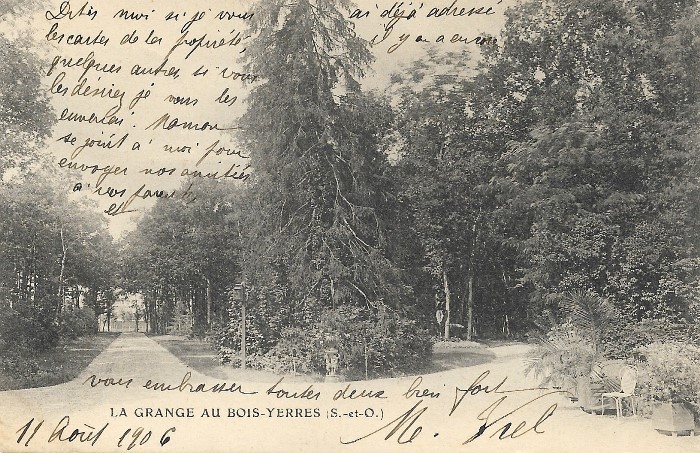 Dites moi si je vous ai déjà adressé
les cartes de la propriété, il y en a encore
quelques autres si vous
les désirez je vous les
enverrai Maman
se joint à moi pour
envoyer nos amitiés
à vos parents
et
vous embrasser toutes deux bien fort
LA GRANGE AU BOIS-YERRES (S.-et-O.)
11 Août 1906
M.